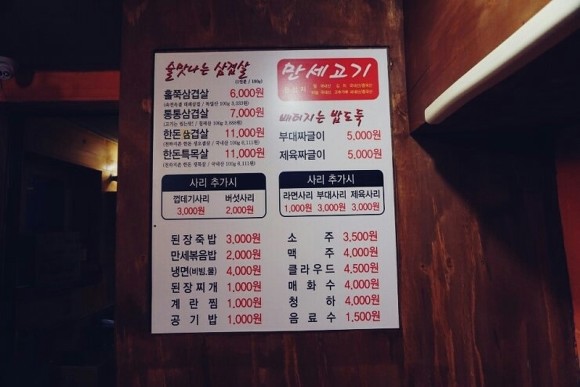 술맛나는 삼겹살
홀쭉삼겹살 6,000원
통통삼겹살 7,000원
한돈 삼겹살 11,000원
한돈특목살 11,000원
사리 추가시
껍데기사리 버섯사리
3,000원 2,000원
된장죽밥 3,000원
만세볶음밥 2,000원
냉면(비빔,물) 4,000원
된장찌개 1,000원
계란찜 1,000원
공기밥 1,000원
만세고기
배터지는 밥도둑
부대짜글이 5,000원
제육짜글이 5,000원
사리 추가시
라면사리 부대사리 제육사리
1,000원 3,000원 3,000원
소주 3,500원
맥주 4,000원
클라우드 4,500원
매화수 4,000원
청하 4,000원
음료수 1,500원